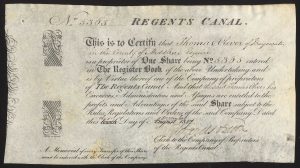 No. 5393 REGENTS CANAL.
This is to Certify that Thomas
in the County of
is a proprietor of One Share being No. 5393 entered
in The Register Book of the above Undertaking and
is by Virtue thereof one of the Company of proprietors
of The Regents Canal And that the said
Executors Administrators and Assigns are entitled to the
profits and Advantages of the said Share subject to the
Rules Regulations and Orders of the said Company Dated
this Day of August
Clerk to the Company of Proprietors
of the Regents Canal
A Memorial of every Transfer of this Share
must be entered with the Clerk of the Company